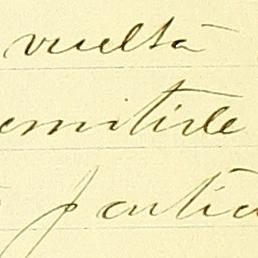 vuelta
emitirle
partic